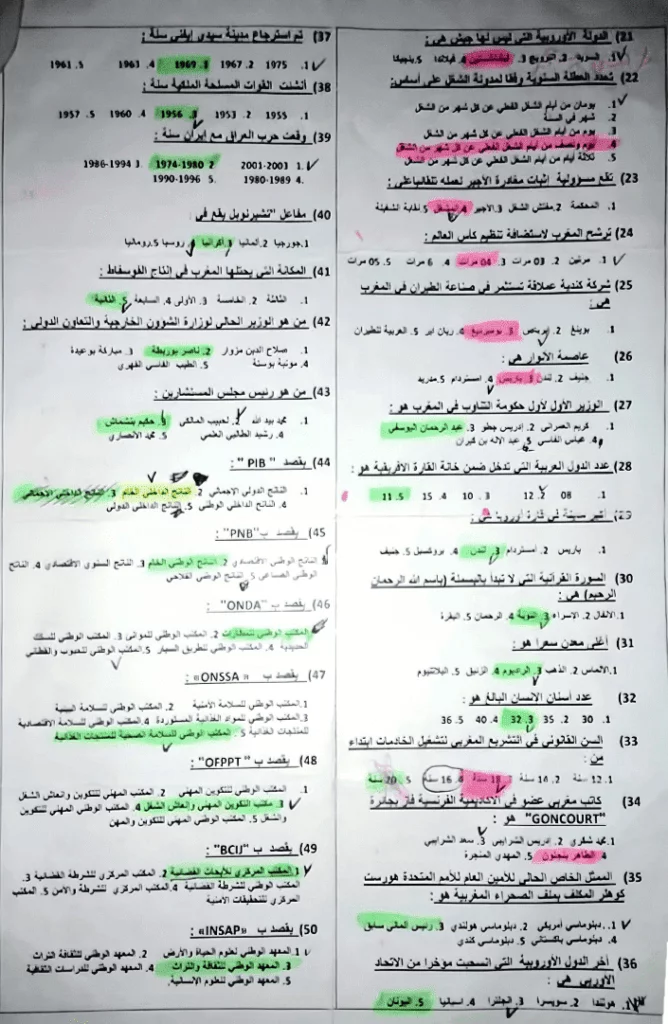 21) الدولة الأوروبية التي ليس لها جيش هي:
1. السويد 2. النرويج 3. 4. فيلاندا 5. بلجيكا
22) تحدد العطلة السنوية وفقا لمدونة الشغل على أساس:
1. يومان من أيام الشغل الفعلي عن كل شهر من الشغل
2. شهر في السنة
3. يوم من أيام الشغل الفعلي عن كل شهر من الشغل
4. يوم ونصف من أيام الشغل الفعلي عن كل شهر من الشغل
5. ثلاثة أيام من أيام الشغل الفعلي عن كل شهر من الشغل
23) تقع مسؤولية إثبات مغادرة الأجير لعمله تلقائيا على:
1. المحكمة 2. مفتش الشغل 3. الأجير 4. المشغل 5. نقابة الشغيلة
24) ترشح المغرب لاستضافة تنظيم كأس العالم:
1. مرتين 2. 03 مرات 3. 04 مرات 4. 6 مرات 5. 05 مرات
25) شركة كندية عملاقة تستثمر في صناعة الطيران في المغرب
هي:
1. بوينغ 2. ايرباص 3. بومبرديغ 4. ريان اير 5. العربية للطيران
26) عاصمة الأنوار هي:
1. جنيف 2. لندن 3. باريس 4. امستردام 5. مدريد
27) الوزير الأول لأول حكومة التناوب في المغرب هو:
1. كريم العمراني 2. إدريس جطو 3. عبد الرحمان اليوسفي
4. عباس الفاسي 5. عبد الاله بن كيران
28) عدد الدول العربية التي تدخل ضمن خانة القارة الافريقية هو:
1. 08 2. 12 3. 10 4. 15 5. 11
29) أكبر مدينة في قارة أوروبا هي:
1. باريس 2. امستردام 3. لندن 4. بروكسيل 5. جنيف
30) السورة القرآنية التي لا تبدأ بالبسملة (باسم الله الرحمان
الرحيم) هي:
1. الانفال 2. الاسراء 3. التوبة 4. الرحمان 5. البقرة
31) أغلى معدن سعرا هو:
1. الالماس 2. الذهب 3. الراديوم 4. الزئبق 5. البلاتنيوم
32) عدد أسنان الانسان البالغ هو:
1. 30 2. 35 3. 32 4. 40 5. 36
33) السن القانوني في التشريع المغربي لتشغيل الخادمات ابتداء
من:
1. 12 سنة 2. 14 سنة 3. 18 سنة 4. 16 سنة 5. 20 سنة
34) كاتب مغربي عضو في الاكاديمية الفرنسية فاز بجائزة
"GONCOURT" هو:
1. محمد شكري 2. إدريس الشرايبي 3. سعد الشرايبي
4. الطاهر بنجلون 5. المهدي المنجرة
35) الممثل الخاص الحالي للأمين العام للأمم المتحدة هورست
كوهلر المكلف بملف الصحراء المغربية هو:
1. دبلوماسي أمريكي 2. دبلوماسي هولندي 3. رئيس ألماني سابق
4. دبلوماسي باكستاني 5. دبلوماسي كندي
36) أخر الدول الأوروبية التي انسحبت مؤخرا من الاتحاد
الأوربي هي:
1. هولندا 2. سويسرا 3. انجلترا 4. اسبانيا 5. اليونان
37) تم استرجاع مدينة سيدي إيفني سنة:
1. 1975 2. 1967 3. 1969 4. 1963 5. 1961
38) أنشئت القوات المسلحة الملكية سنة:
1. 1955 2. 1953 3. 1956 4. 1960 5. 1957
39) وقعت حرب العراق مع إيران سنة:
1. 2001-2003 2. 1974-1980 3. 1986-1994
4. 1980-1989 5. 1990-1996
40) مفاعل "تشيرنوبل يقع في:
1. جورجيا 2. ألمانيا 3. أكرانيا 4. روسيا 5. رومانيا
41) المكانة التي يحتلها المغرب في إنتاج الفوسفاط:
1. الثالثة 2. الخامسة 3. الأولى 4. السابعة 5. الثانية
42) من هو الوزير الحالي لوزارة الشؤون الخارجية والتعاون الدولي:
1. صلاح الدين مزوار 2. ناصر بوريطة 3. مباركة بوعيدة
4. مونية بوستة 5. الطيب الفاسي الفهري
43) من هو رئيس مجلس المستشارين:
1. محمد بيد الله 2. لحبيب المالكي 3. حكيم بنشماش
4. رشيد الطالبي العلمي 5. محمد الأنصاري
44) يقصد "PIB":
1. الناتج الدولي الاجمالي 2. الناتج الداخلي الخام 3. الناتج الداخلي الاجمالي
4. الناتج الداخلي الوطني 5. الناتج الداخلي الدولي
45) يقصد ب"PNB":
1. الناتج الوطني الاقتصادي 2. الناتج الوطني الخام 3. الناتج السنوي الاقتصادي 4. الناتج
الوطني الصناعي 5. الناتج الوطني الفلاحي
46) يقصد ب"ONDA":
1. المكتب الوطني للمطارات 2. المكتب الوطني للموانئ 3. المكتب الوطني للسكك
الحديدية 4. المكتب الوطني للطريق السيار 5. المكتب الوطني للحبوب والقطاني
47) يقصد ب «ONSSA»:
1. المكتب الوطني للسلامة الأمنية 2. المكتب الوطني للسلامة البيئية
3. المكتب الوطني للمواد الغذائية المستوردة 4. المكتب الوطني للسلامة الاقتصادية
للمنتجات الغذائية 5. المكتب الوطني للسلامة الصحية للمنتجات الغذائية
48) يقصد ب "OFPPT":
1. المكتب الوطني للتكوين المهني 2. المكتب المهني للتكوين وانعاش الشغل
3. مكتب التكوين المهني وإنعاش الشغل 4. المكتب الوطني المهني للتكوين
والشغل 5. المكتب الوطني المهني للتكوين والمهن
49) يقصد ب "BCIJ":
1. المكتب المركزي للأبحاث القضائية 2. المكتب المركزي للشرطة القضائية 3.
المكتب الوطني للشرطة القضائية 4. المكتب المركزي للشرطة والأمن 5. المكتب
المركزي للتحقيقات الامنية
50) يقصد ب «INSAP»:
1. المعهد الوطني لعلوم الحياة والأرض 2. المعهد الوطني للثقافة التراث
3. المعهد الوطني للثقافة والتراث 4. المعهد الوطني للدراسات الثقافية
5. المعهد الوطني للعلوم الإنسانية.